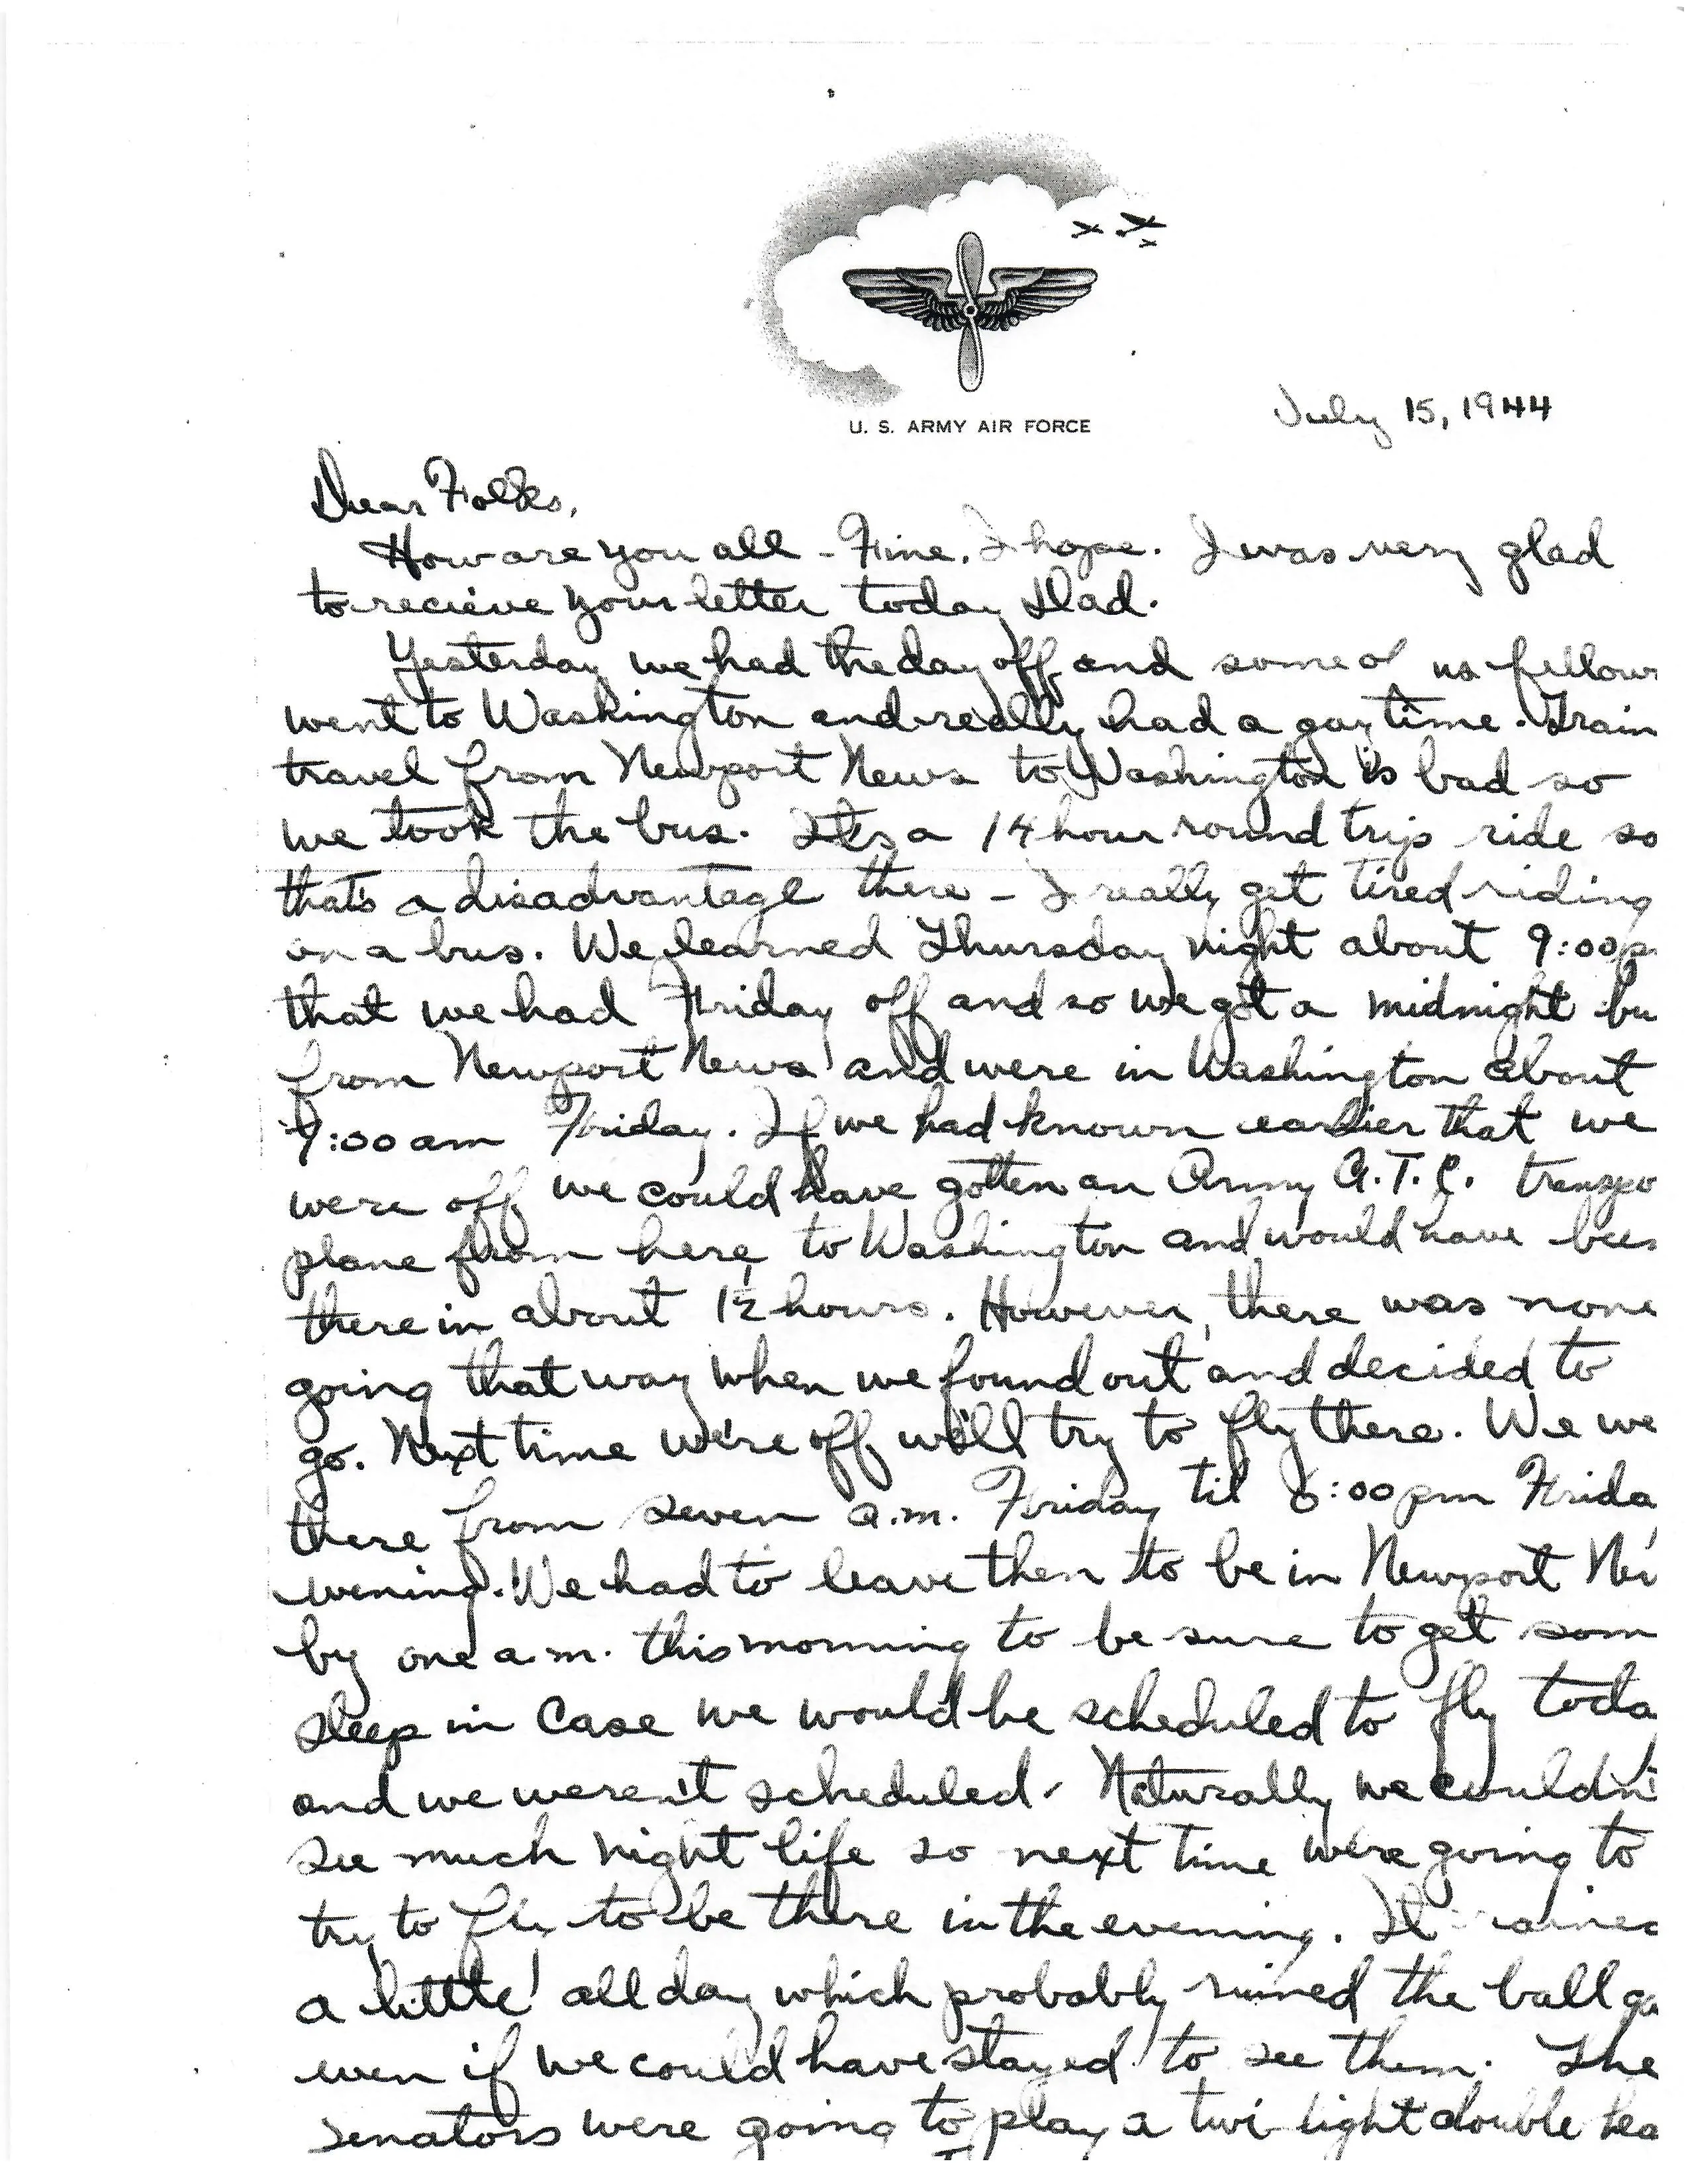 U. S. ARMY AIR FORCE
July 15, 1944
Dear Folks,
How are you all - Fine, I hope. I was very glad
to recieve your letter today Dad.
Yesterday we had the day off and some of us fellow
went to Washington and really had a gay time. Train
travel from Newport News to Washington is bad so
we took the bus. It's a 14 hour round trip ride so
that's a disadvantage there - I really get tired riding
on a bus. We learned Thursday night about 9:00p
that we had Friday off and so we got a midnight bu
from Newport News and were in Washington about
7:00 am Friday. If we had known earlier that we
were off we could have gotten an Army A.T.C. transpo
plane from here, to Washington and would have been
there in about 1½ hours. However, there was none
going that way when we found out and decided to
go. Next time we're off we'll try to fly there. We we
there from seven a.m. Friday til 6:00 pm Frida
evening. We had to leave then to be in Newport New
by one a.m. this morning to be sure to get som
sleep in case we would be scheduled to fly toda
and we weren't scheduled. Naturally we couldn't
see much night life so next time we're going to
try to fly to be there in the evening. It rained
a little all day which probably ruined the ball ga
even if we could have stayed to see them. The
Senators were going to play a twi-light double hea